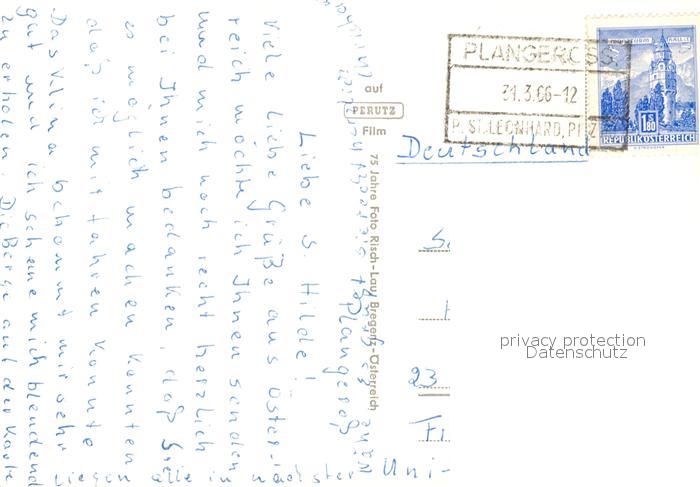 Liebe S. Hilde!
Viele liebe Grüße aus Öster-
reich möchte ich Ihnen senden
und mich noch recht herzlich
bei Ihnen bedanken, daß Sie
es möglich machen konnten
daß ich mit fahren konnte
Das Klima bekommt mir sehr
gut und ich scheine mich blendend
zu erholen. Die Berge auf der Karte
liegen alle in nächster Uni-
Plangeroß
auf
PERUTZ
Film
75 Jahre Foto Risch-Lau, Bregenz-Österreich
PLANGEROSS
31.3.66-12
P. ST. LEONHARD, PITZ
1.80
REPUBLIK ÖSTERREICH
Deutschland
S.
23
privacy protection
Datenschutz